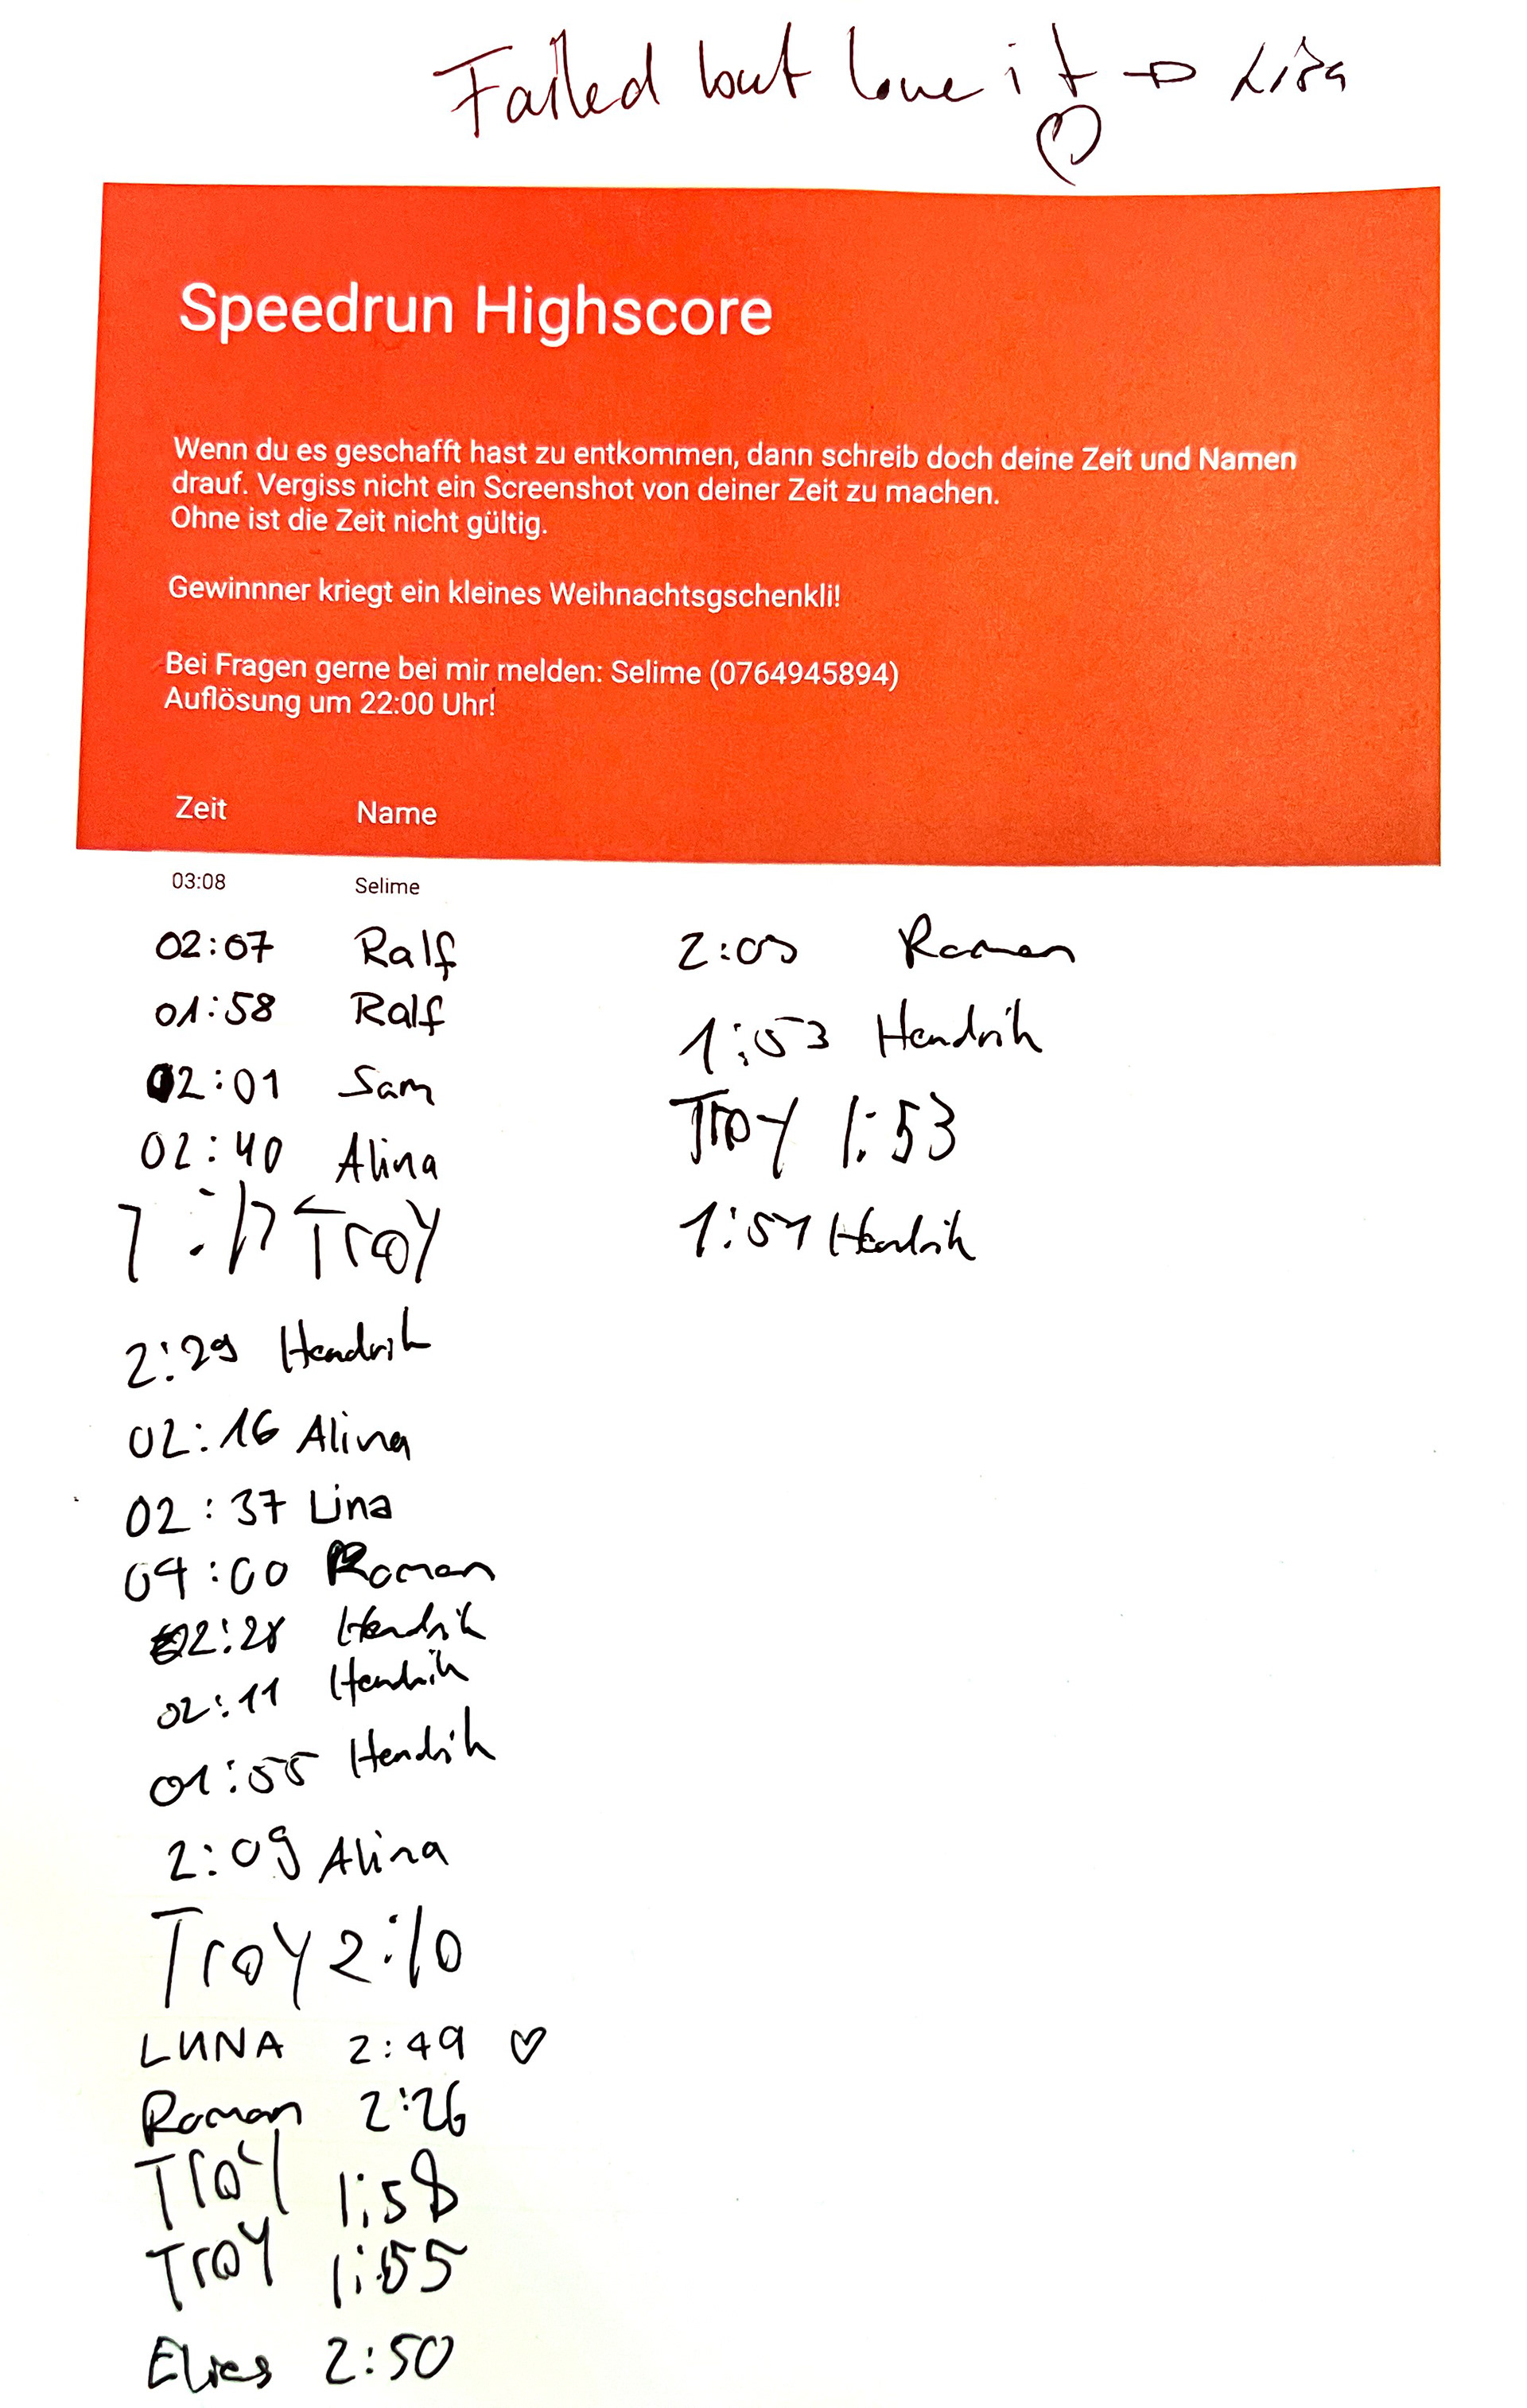 Failed but love it → Lisa
♡
Speedrun Highscore
Wenn du es geschafft hast zu entkommen, dann schreib doch deine Zeit und Namen
drauf. Vergiss nicht ein Screenshot von deiner Zeit zu machen.
Ohne ist die Zeit nicht gültig.
Gewinnner kriegt ein kleines Weihnachtsgschenkli!
Bei Fragen gerne bei mir melden: Selime (0764945894)
Auflösung um 22:00 Uhr!
Zeit Name
03:08 Selime
02:07 Ralf
01:58 Ralf
02:01 Sam
02:40 Alina
Troy
2:29 Hendrik
02:16 Alina
02:37 Lina
04:00 Roman
02:28 Hendrik
02:11 Hendrik
01:55 Hendrik
2:09 Alina
Troy 2:10
LUNA 2:49 ♡
Roman 2:26
Troy 1:58
Troy 1:55
Elies 2:50
2:09 Roman
1:53 Hendrik
Troy 1:53
1:51 Hendrik